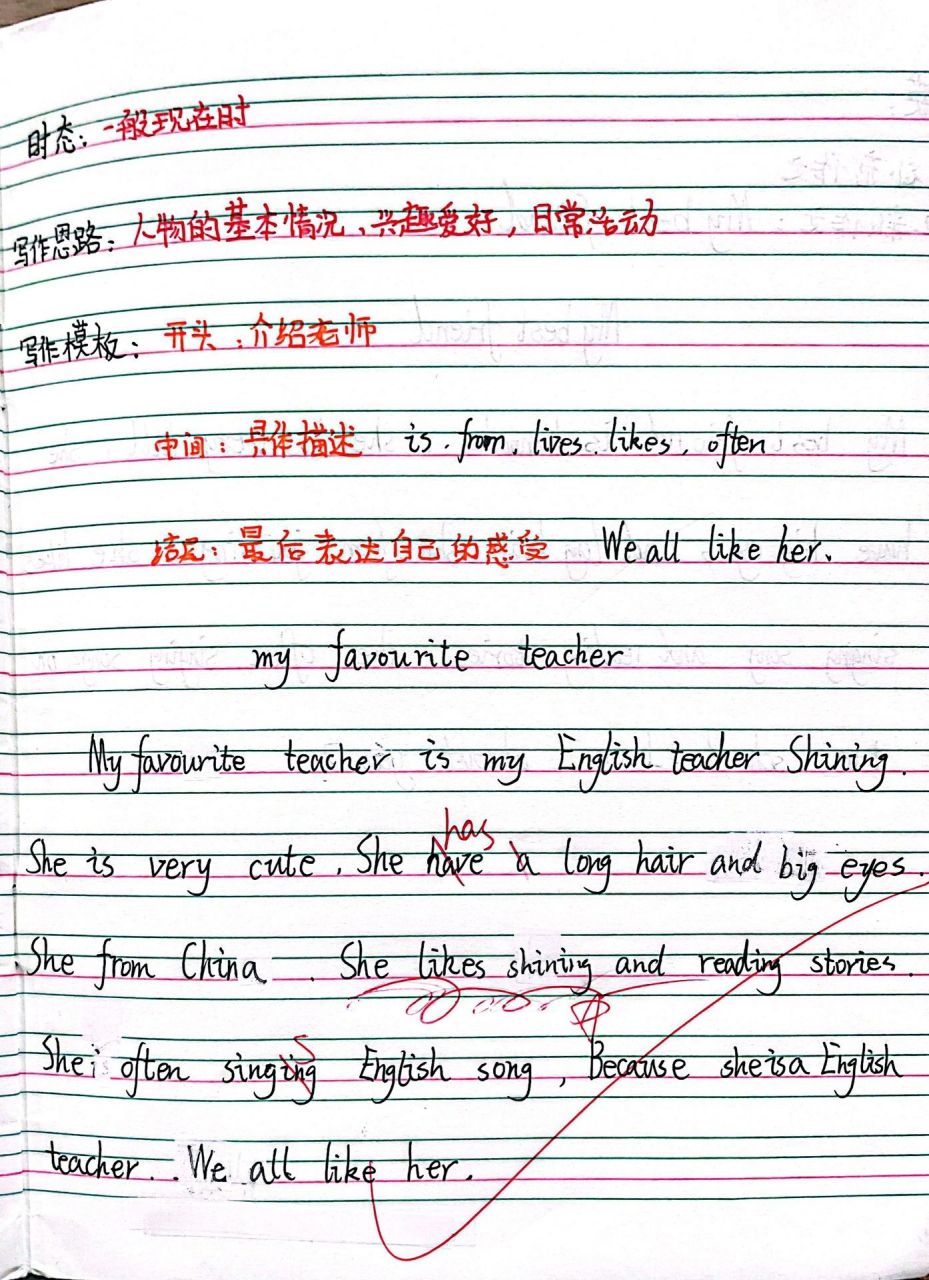 时态：一般现在时
写作思路：人物的基本情况、兴趣爱好，日常活动
写作模板：开头：介绍老师
中间：具体描述 is.from.lives.likes.often
结尾：最后表达自己的感受 We all like her.
my favourite teacher
My favourite teacher is my English teacher Shining.
has
She is very cute. She have a long hair and big eyes.
She from China. She likes shining and reading stories.
s
She often singing English song, Because she is a English
teacher. We all like her.